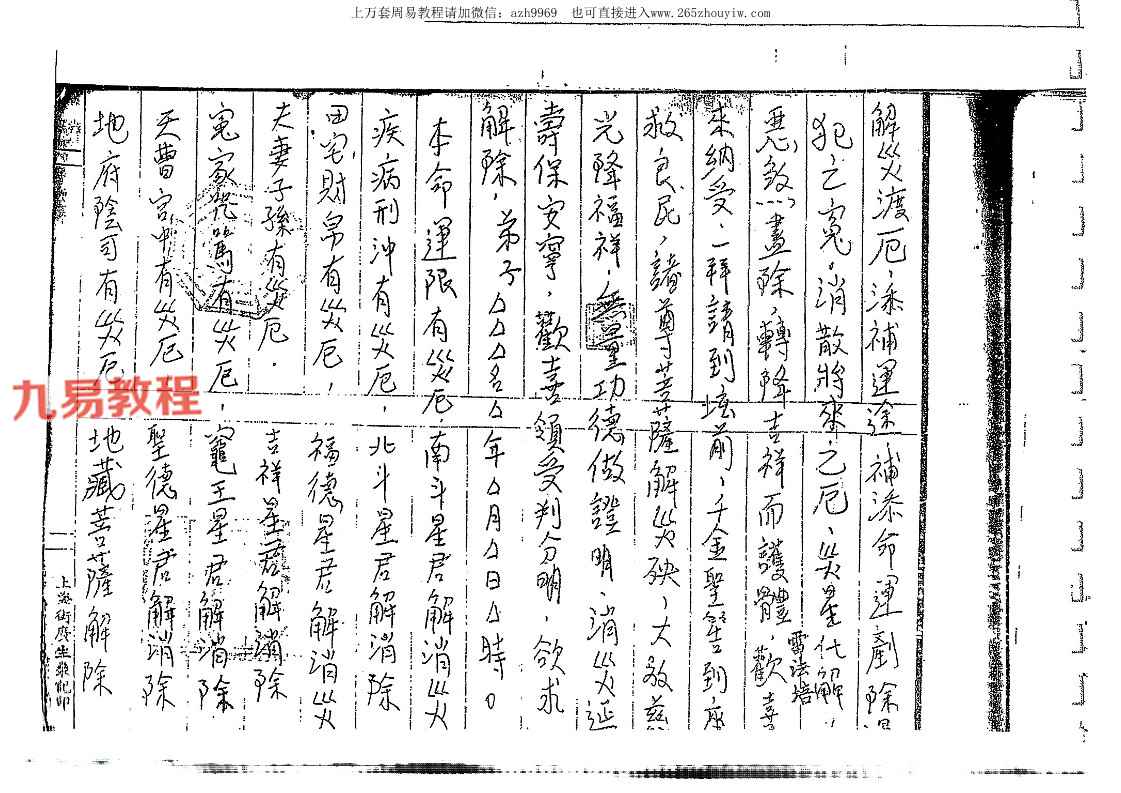 上万套周易教程请加微信：azh9969 也可直接进入www.265zhouyiw.com
解災渡厄，添補運途，補添命運剷除
犯之冤，消散將來之厄，災星代解，
惡煞盡除，轉降吉祥而護體，歡喜
雷法培
來納受，一拜請到坛前，千金聖答到座
救良民，諸尊菩薩解災殃，大放慈
光降福祥，無量功德做證明，消災延
壽保安寧，歡喜領受判分明，欲求
解除，弟子△△△名△年△月△日△時。
本命運限有災厄，南斗星君解消災
疾病刑沖有災厄，北斗星君解消除
田宅財帛有災厄，福德星君解消災
夫妻子孫有災厄，吉祥星君解消除
冤家咒罵有災厄，竈王星君解消除
天曹宮中有災厄 聖德星君解消除
地府陰司有災厄 地藏菩薩解除
九易教程